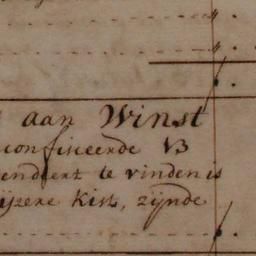 aan Winst
confisceerde
te vinden is
ijzere Kist, zijnde